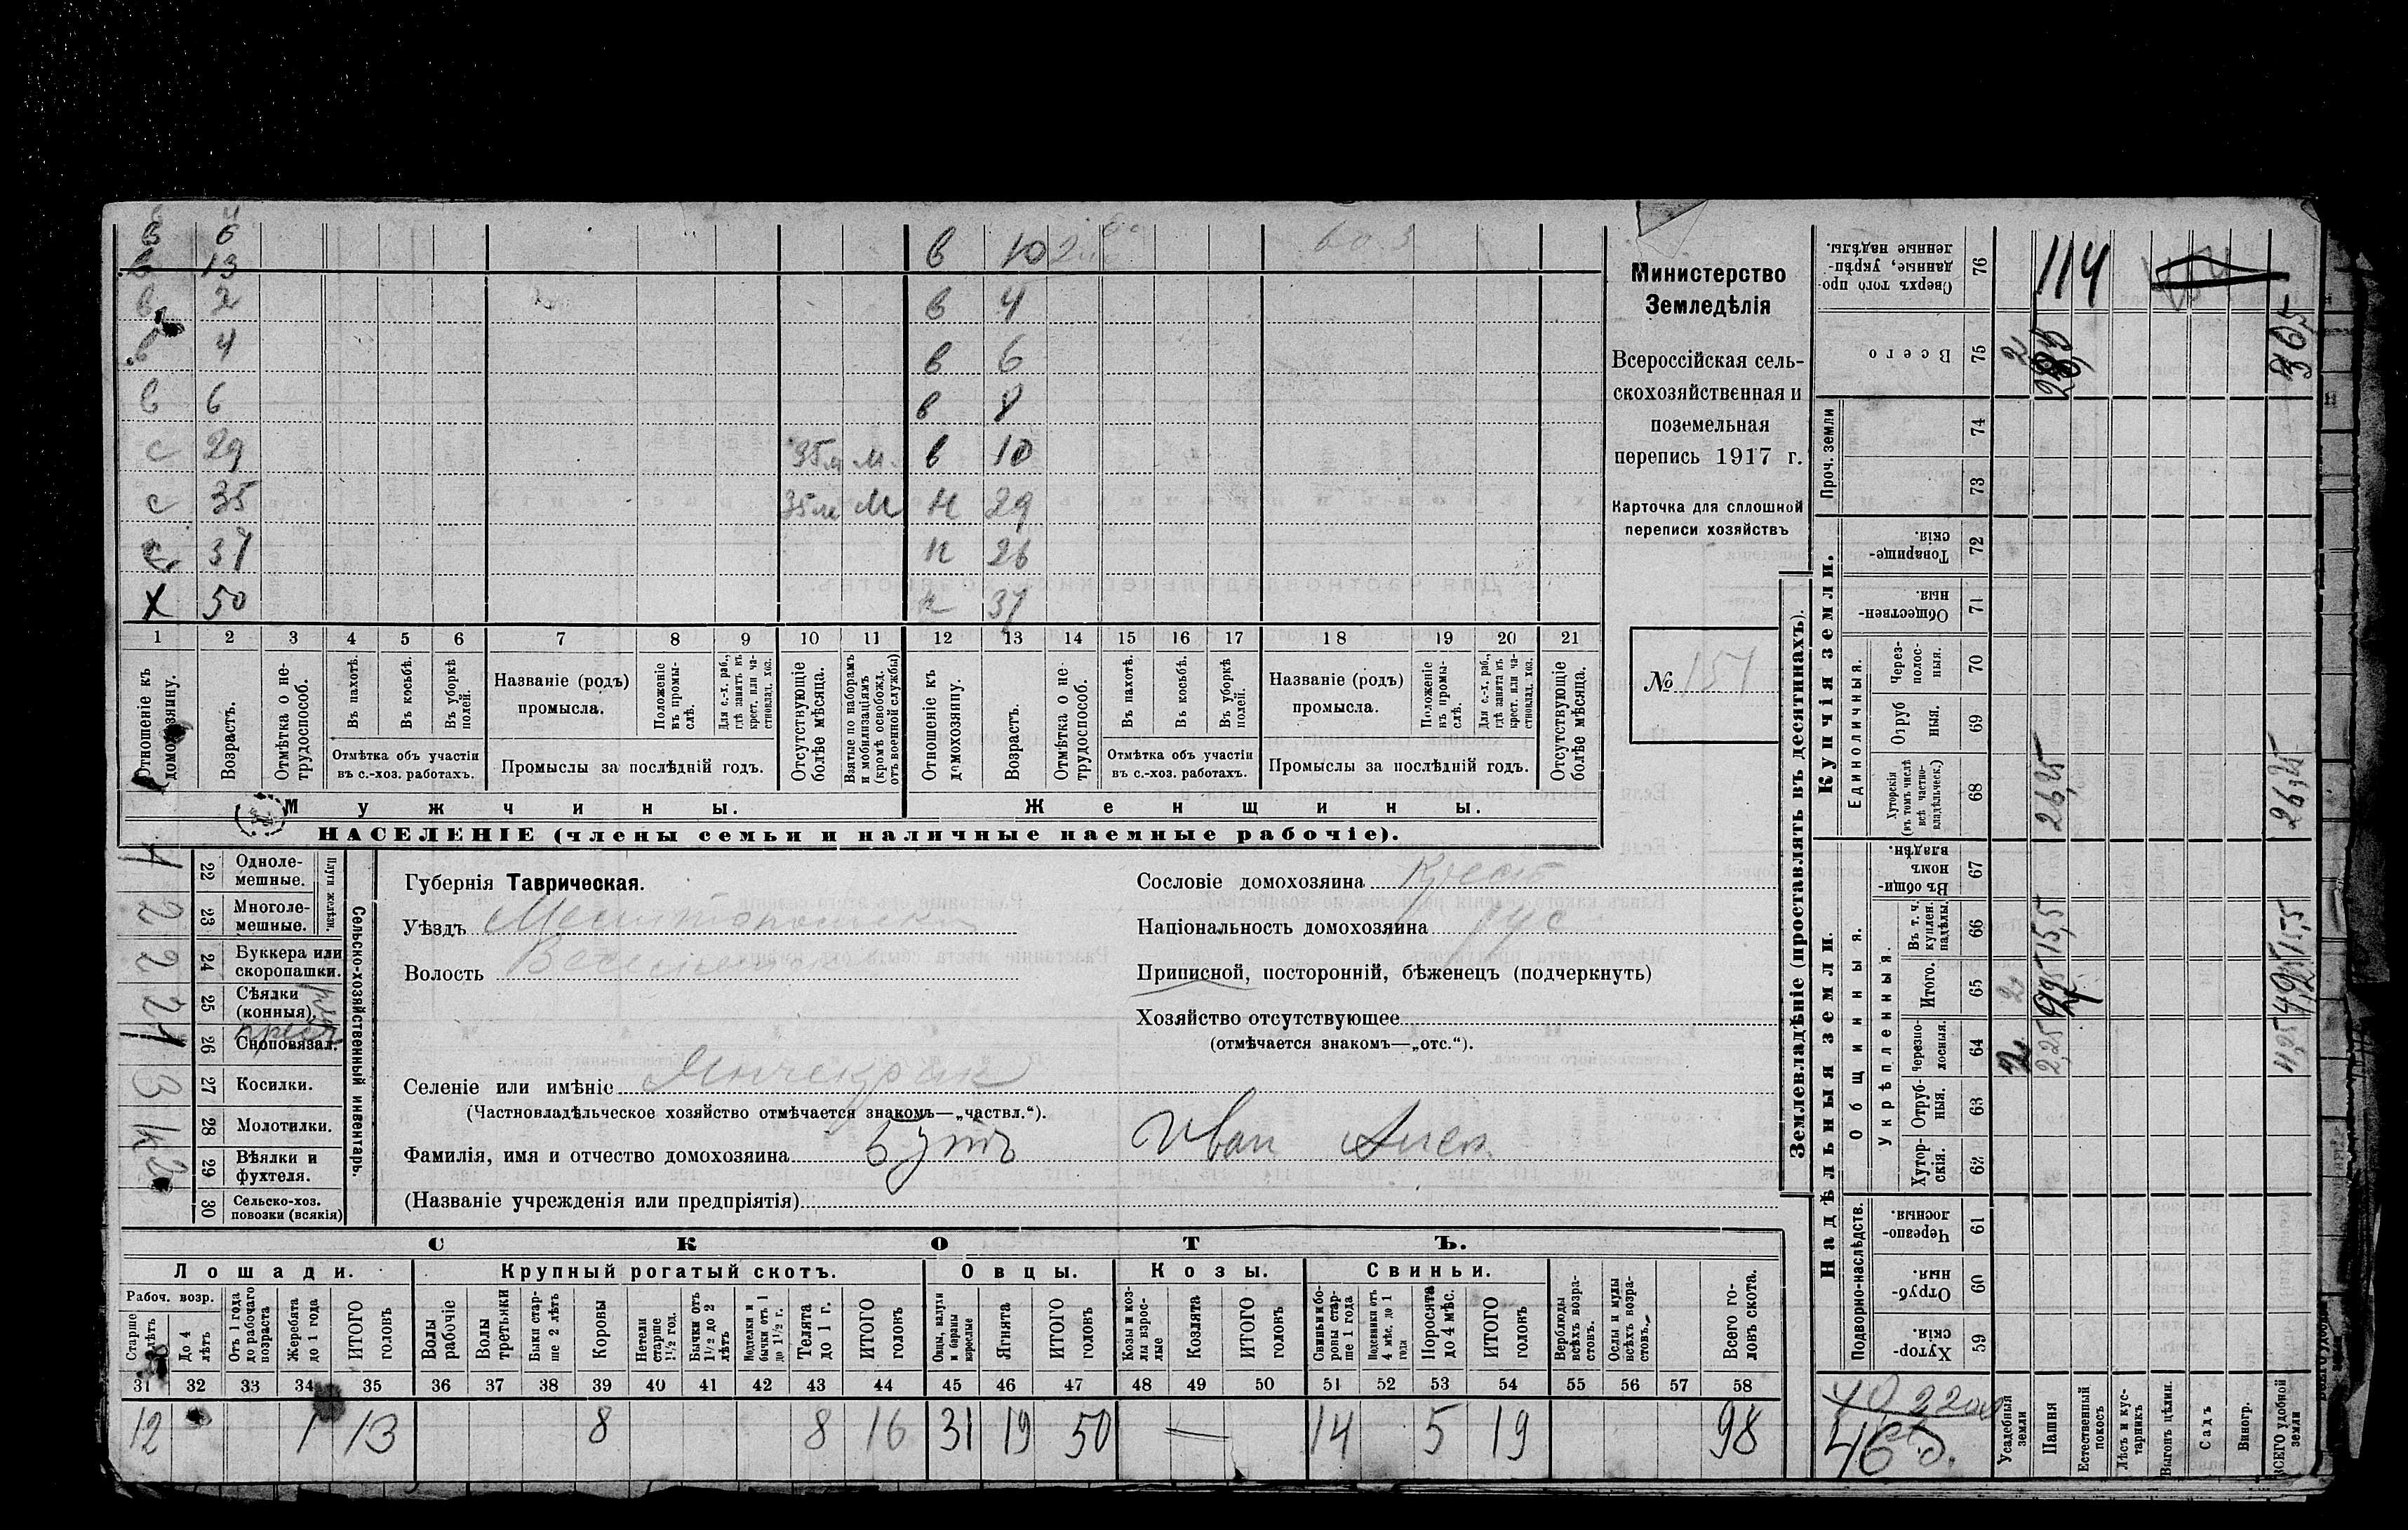 в 6 в 10
в 13
в 2 в 4
в 4 в 6
в 6 в 8
с 29 35 м м. в 10
с 35 35 м М н 29
с 37 н 26
Х 50 н 37
1 2 3 4 5 6 7 8 9 10 11 12 13 14 15 16 17 18 19 20 21
Отношеніе къ домохозяину.
Возрастъ.
Отмѣтка о нетрудоспособ.
Въ пахотѣ.
Въ косьбѣ.
Въ уборкѣ полей.
Отмѣтка объ участіи
въ с.-хоз. работахъ.
Названіе (родъ)
промысла.
Положеніе въ промыслѣ.
Для с.-х. раб., гдѣ занятъ въ крест. или частновлад. хоз.
Промыслы за послѣдній годъ.
Отсутствующіе болѣе мѣсяца.
Взятые по наборамъ и мобилизаціямъ (кромѣ освобожд. отъ военной службы)
Отношеніе къ домохозяину.
Возрастъ.
Отмѣтка о нетрудоспособ.
Въ пахотѣ.
Въ косьбѣ.
Въ уборкѣ полей.
Отмѣтка объ участіи
въ с.-хоз. работахъ.
Названіе (родъ)
промысла.
Положеніе въ промыслѣ.
Для с.-х. раб., гдѣ занята въ крест. или частновлад. хоз.
Промыслы за послѣдній годъ.
Отсутствующіе болѣе мѣсяца.
Мужчины.
Женщины.
НАСЕЛЕНІЕ (члены семьи и наличные наемные рабочіе).
Министерство
Земледѣлія
Всероссійская сель-
скохозяйственная и
поземельная
перепись 1917 г.
Карточка для сплошной
переписи хозяйствъ
№ 151
Сельско-хозяйственный инвентарь.
Плуги желѣзн.
22 Одноле-
мешные.
23 Многоле-
мешные.
24 Буккера или
скоропашки.
25 Сѣялки
(конныя).
26 Сноповязал.
27 Косилки.
28 Молотилки.
29 Вѣялки и
фухтеля.
30 Сельско-хоз.
повозки (всякія)
Губернія Таврическая.
Уѣздъ Мелитопольск
Волость
Сословіе домохозяина Крест
Національность домохозяина рус
Приписной, посторонній, бѣженецъ (подчеркнуть)
Хозяйство отсутствующее
(отмѣчается знакомъ—„отс.“).
Селеніе или имѣніе Янчекрак
(Частновладѣльческое хозяйство отмѣчается знакомъ—„частвл.“).
Фамилія, имя и отчество домохозяина Бутъ Иван Алек.
(Названіе учрежденія или предпріятія)
СКОТЪ.
Лошади. Крупный рогатый скотъ. Овцы. Козы. Свиньи.
Рабоч. возр.
Старше 4 лѣтъ
До 4 лѣтъ
Отъ 1 года до рабочаго возраста
Жеребята до 1 года
ИТОГО головъ
Волы рабочіе
Волы третьяки
Быки старше 2 лѣтъ
Коровы
Нетели старше 1½ год.
Бычки отъ 1½ до 2 лѣтъ
Подтелки и бычки отъ 1 до 1½ г.
Телята до 1 г.
ИТОГО головъ
Овцы, валухи и бараны взрослые
Ягнята
ИТОГО головъ
Козы и козлы взрослые
Козлята
ИТОГО головъ
Свиньи и боровы старше 1 года
Подсвинки отъ 4 мѣс. до 1 года
Поросята до 4 мѣс.
ИТОГО головъ
Верблюды всѣхъ возрастовъ.
Ослы и мулы всѣхъ возрастовъ.
Всего головъ скота.
31 32 33 34 35 36 37 38 39 40 41 42 43 44 45 46 47 48 49 50 51 52 53 54 55 56 57 58
12 1 13 8 8 16 31 19 50 14 5 19 98
Землевладѣніе (проставлять въ десятинахъ).
Надѣльныя земли.
Купчія земли.
Проч. земли
Подворно-наслѣдств.
Общинныя.
Укрѣпленныя.
Единоличныя.
Сверхъ того проданные, укрѣпленные надѣлы. 76 114
Всего 75
74
73
Товарищескія. 72
Общественныя. 71
Черезполосныя. 70
Отрубныя. 69
Хуторскія (въ томъ числѣ всѣ частновладѣльческ.) 68 26,25 26,25
Въ общинномъ владѣн. 67
Въ т. ч. куплен. надѣлы. 66 15,5 15,5
Итого. 65
Черезполосныя. 64
Отрубныя. 63
Хуторскія. 62
Черезполосныя. 61
Отрубныя. 60
Хуторскія. 59
Усадебныя земли
Пашня
Естественный покосъ
Лѣсъ и кустарникъ
Выгонъ цѣлин.
Садъ
Виногр.
ВСЕГО удобной земли